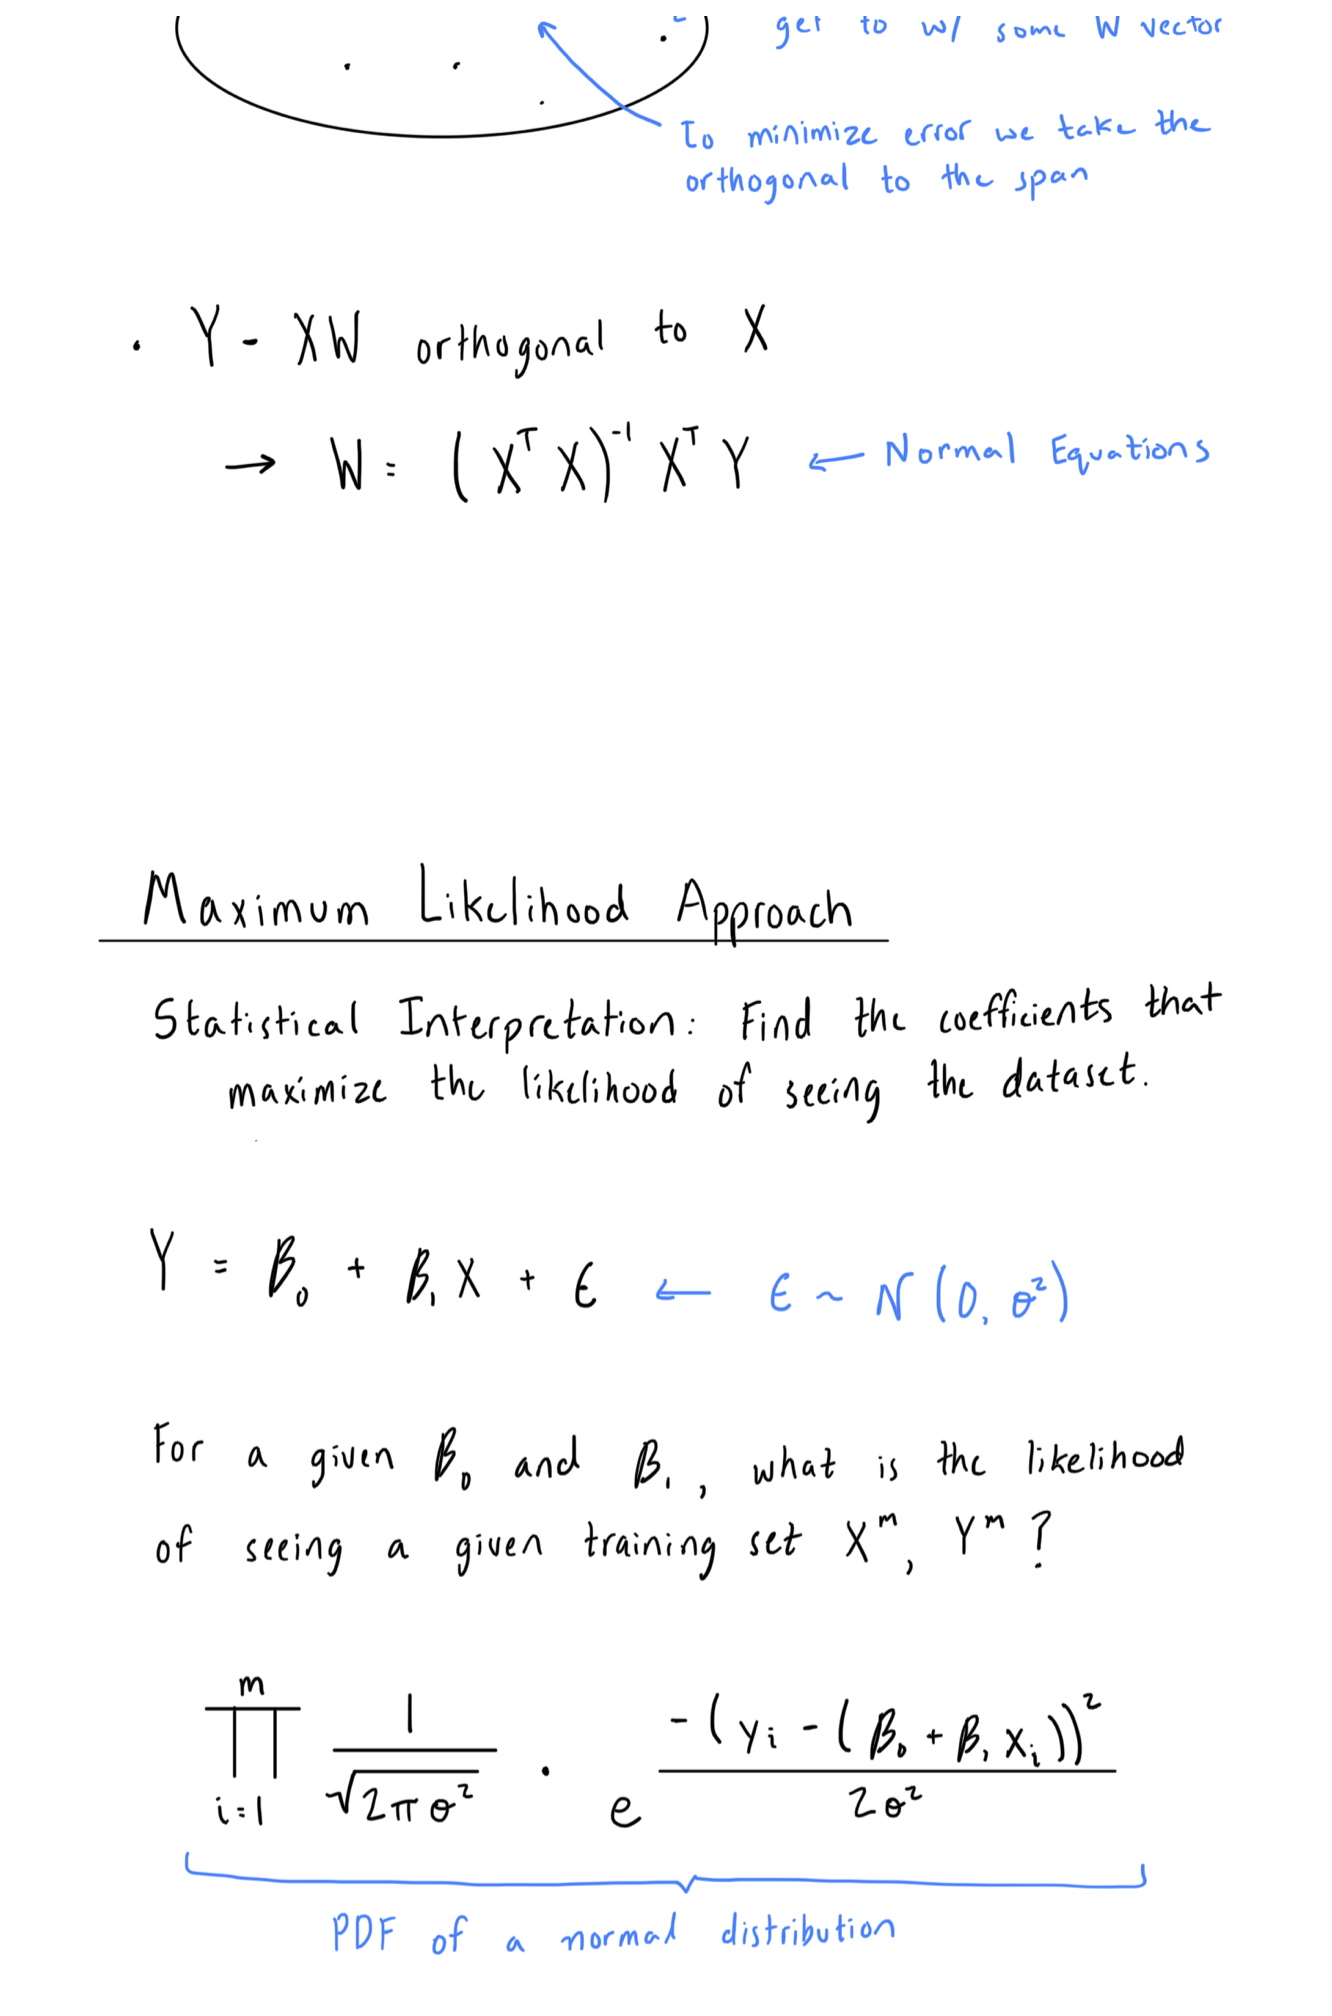 get to w/ some W vector
To minimize error we take the
orthogonal to the span
· Y - XW orthogonal to X
→ W = (XᵀX)⁻¹ XᵀY ← Normal Equations
Maximum Likelihood Approach
Statistical Interpretation: Find the coefficients that
maximize the likelihood of seeing the dataset.
Y = β₀ + β₁X + ϵ ← ϵ ~ N(0, σ²)
For a given β₀ and β₁, what is the likelihood
of seeing a given training set Xᵐ, Yᵐ?
∏_{i=1}^{m} 1/√(2πσ²) · e^{-(yᵢ - (β₀ + β₁xᵢ))² / 2σ²}
PDF of a normal distribution